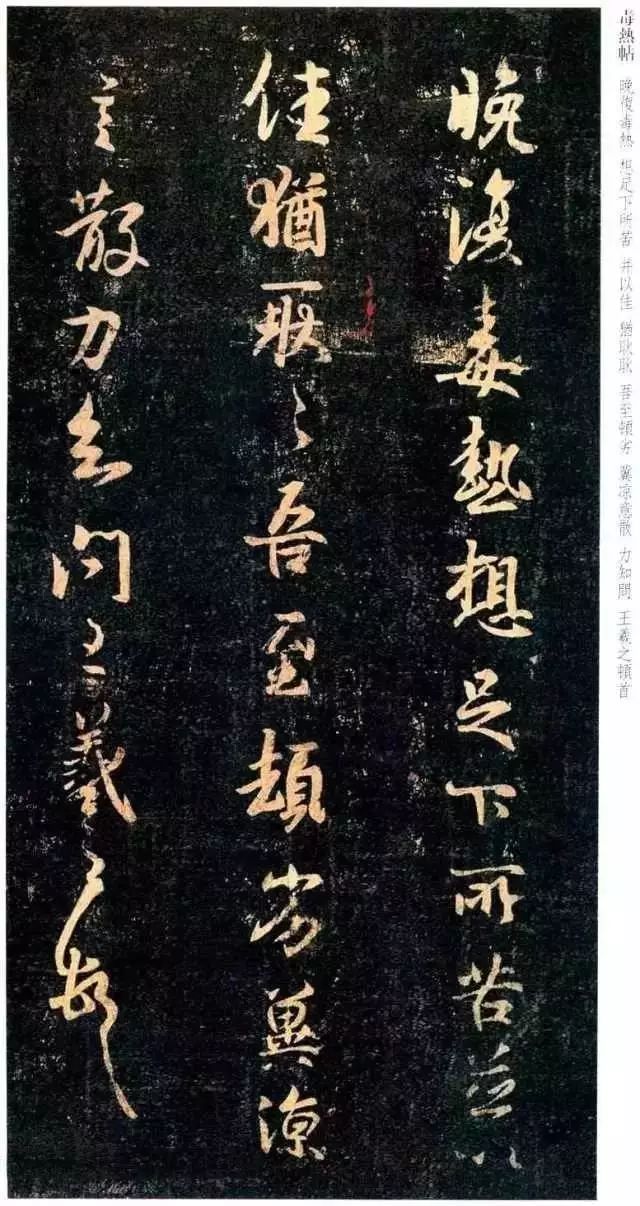 毒熱帖 晚復毒熱 想足下所苦 并以佳 猶耿耿 吾至頓劣 冀凉意散 力知問 王羲之頓首
晚復毒熱想足下所苦並以
佳猶耿々吾至頓劣冀涼
意散力知問王羲之頓首